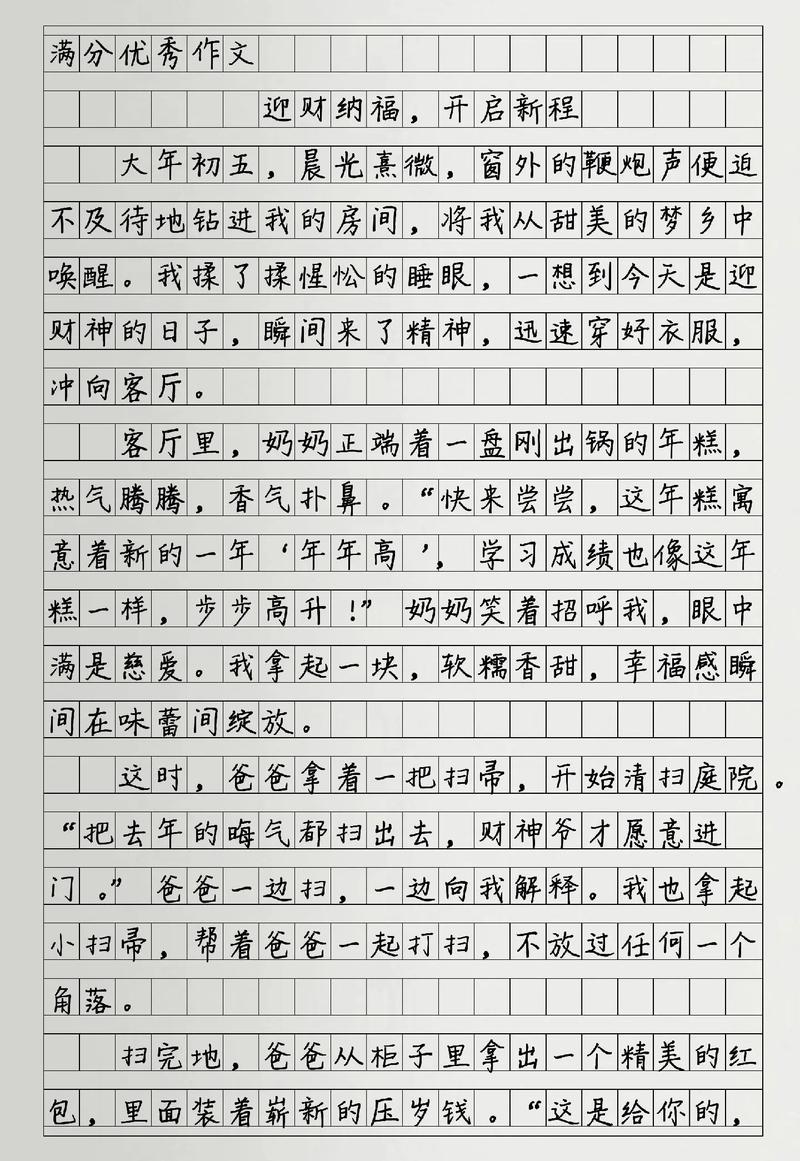 满分优秀作文
迎财纳福，开启新程
大年初五，晨光熹微，窗外的鞭炮声便迫
不及待地钻进我的房间，将我从甜美的梦乡中
唤醒。我揉了揉惺忪的睡眼，一想到今天是迎
财神的日子，瞬间来了精神，迅速穿好衣服，
冲向客厅。
客厅里，奶奶正端着一盘刚出锅的年糕，
热气腾腾，香气扑鼻。“快来尝尝，这年糕寓
意着新的一年‘年年高’，学习成绩也像这年
糕一样，步步高升！”奶奶笑着招呼我，眼中
满是慈爱。我拿起一块，软糯香甜，幸福感瞬
间在味蕾间绽放。
这时，爸爸拿着一把扫帚，开始清扫庭院。
“把去年的晦气都扫出去，财神爷才愿意进
门。”爸爸一边扫，一边向我解释。我也拿起
小扫帚，帮着爸爸一起打扫，不放过任何一个
角落。
扫完地，爸爸从柜子里拿出一个精美的红
包，里面装着崭新的压岁钱。“这是给你的，